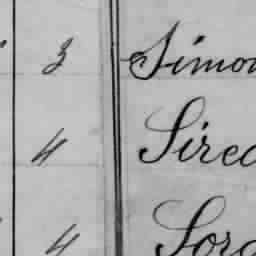 3 Simo
4 Sirec
4 Sor